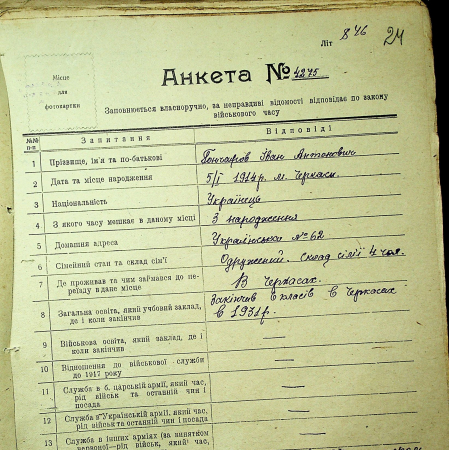 Літ 846 24
Місце
для
фотокартки
Анкета № 4275
Заповнюється власноручно, за неправдиві відомості відповідає по закону
військового часу
№№ п-п Запитання Відповіді
1 Прізвище, ім'я та по-батькові Гончаров Іван Антонович
2 Дата та місце народження 5/I 1914 р. м. Черкаси.
3 Національність Українець
4 З якого часу мешкає в даному місці З народження
5 Домашня адреса Українська № 62
6 Сімейний стан та склад сім'ї Одружений. Склад сімії 4 чол.
7 Де проживав та чим займався до пе-
реїзду в дане місце В Черкасах.
8 Загальна освіта, який учбовий заклад,
де і коли закінчив Закінчив 6 класів в Черкасах
в 1931 р.
9 Військова освіта, який заклад, де і
коли закінчив —
10 Відношення до військової служби
до 1917 року —
11 Служба в б. царській армії, який час,
рід військ та останній чин і
посада —
12 Служба в Українській армії, який час,
рід військ та останній чин і посада —
13 Служба в інших арміях (за винятком
червоної—рід військ, який час, —